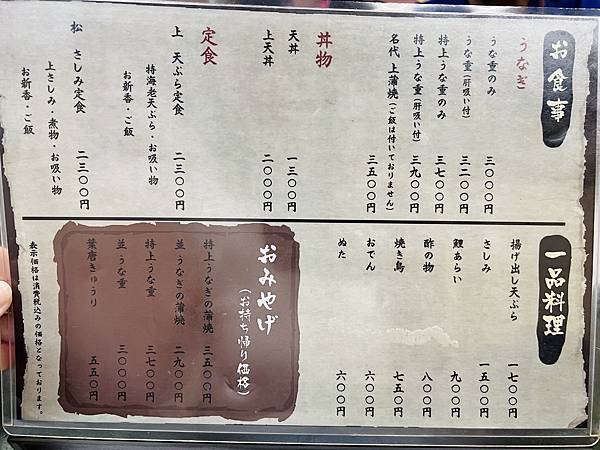 お食事
うなぎ
うな重のみ 三〇〇〇円
うな重(肝吸い付) 三二〇〇円
特上うな重のみ 三七〇〇円
特上うな重(肝吸い付) 三九〇〇円
名代 上蒲焼(ご飯は付いておりません) 三五〇〇円
丼物
天丼 一三〇〇円
上天丼 二〇〇〇円
定食
上 天ぷら定食 二三〇〇円
特海老天ぷら・お吸い物
お新香・ご飯
松 さしみ定食 二三〇〇円
上さしみ・煮物・お吸い物
お新香・ご飯
一品料理
揚げ出し天ぷら 一七〇〇円
さしみ 一五〇〇円
鯉あらい 九〇〇円
酢の物 八〇〇円
焼き鳥 七五〇円
おでん 六〇〇円
ぬた 六〇〇円
おみやげ
(お持ち帰り価格)
特上うなぎの蒲焼 三五〇〇円
並うなぎの蒲焼 二九〇〇円
特上うな重 三七〇〇円
並うな重 三〇〇〇円
葉唐きゅうり 五五〇円
表示価格は消費税込みの価格となっております。